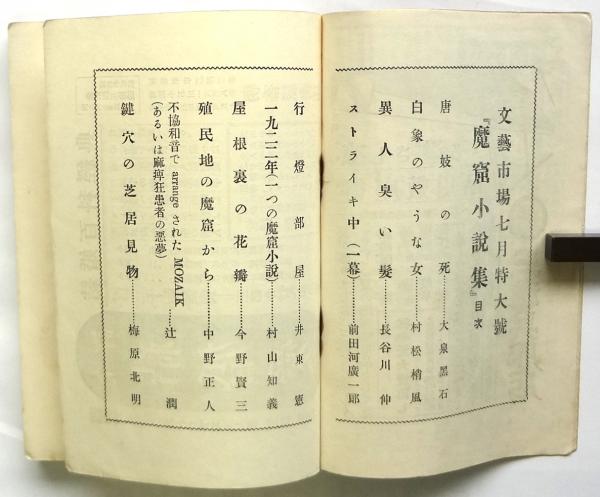 文藝市場七月特大號
『魔窟小說集』目次
唐妓の死………大泉黑石
白象のやうな女………村松梢風
異人臭い髮………長谷川伸
ストライキ中(一幕)………前田河廣一郎
行燈部屋………井東憲
一九二二年(一つの魔窟小說)………村山知義
屋根裏の花瓣………今野賢三
殖民地の魔窟から………中野正人
不協和音で arrange された MOZAIK
(あるいは麻痺狂患者の惡夢)………辻潤
鍵穴の芝居見物………梅原北明